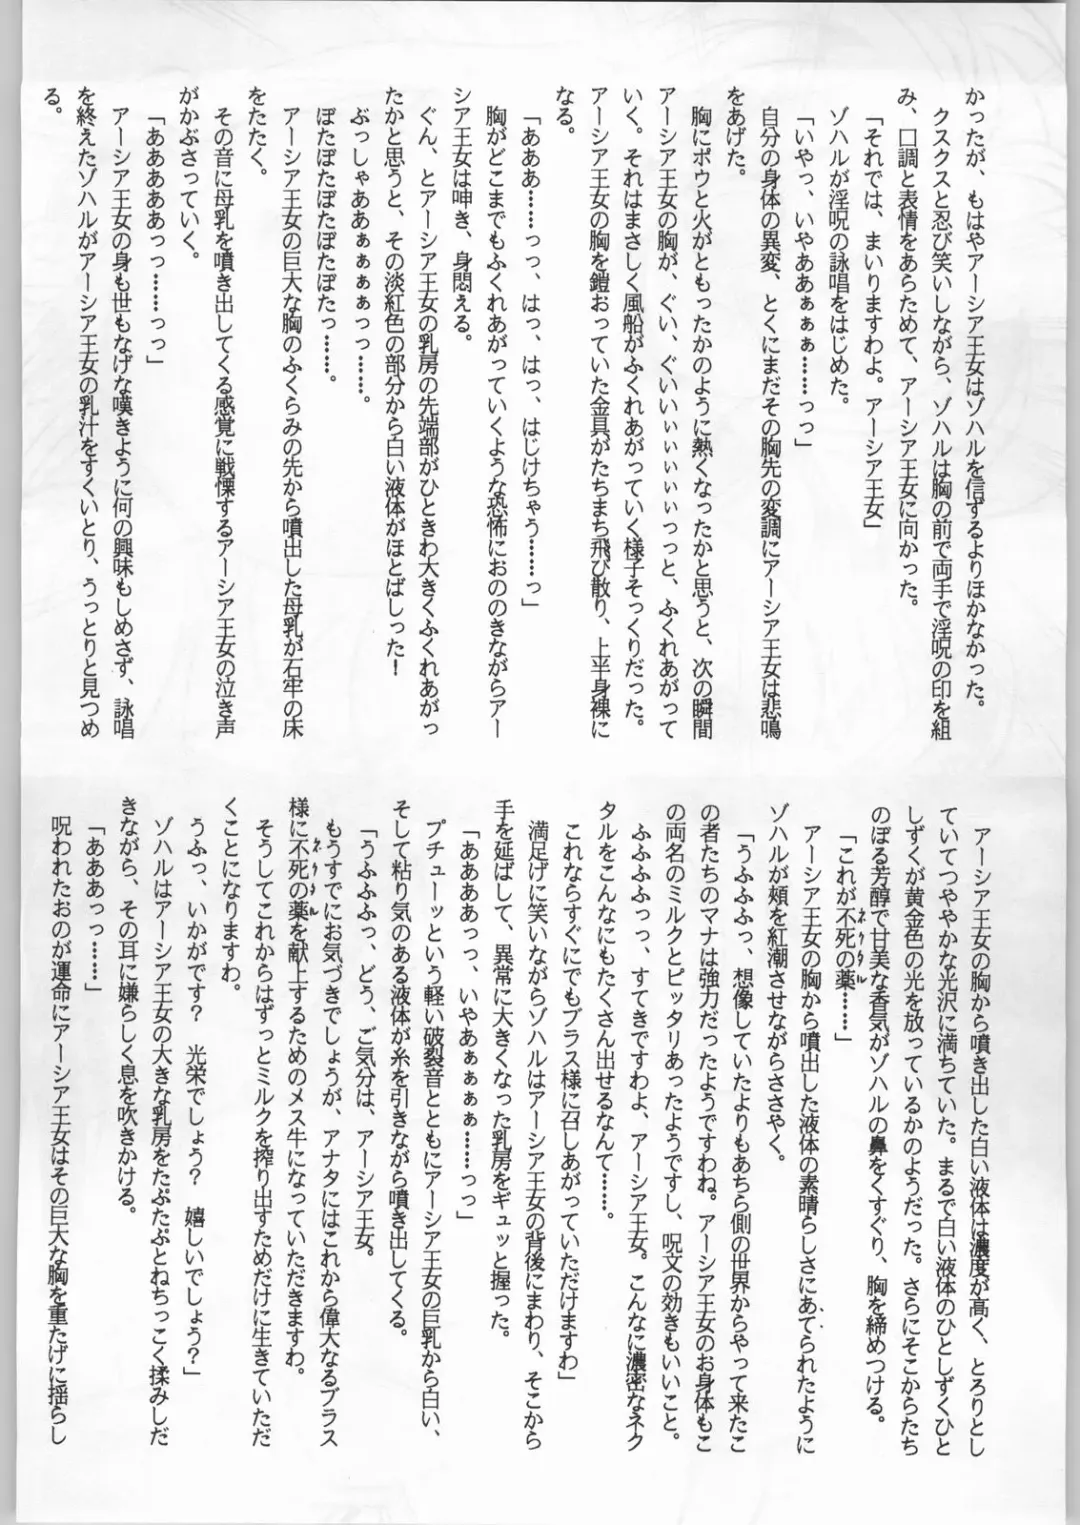 かったが、もはやアーシア王女はゾハルを信ずるよりほかなかった。
クスクスと忍び笑いしながら、ゾハルは胸の前で両手で淫呪の印を組
み、口調と表情をあらためて、アーシア王女に向かった。
「それでは、まいりますわよ。アーシア王女」
ゾハルが淫呪の詠唱をはじめた。
「いやっ、いやああぁぁぁ……っっ」
自分の身体の異変、とくにまだその胸先の変調にアーシア王女は悲鳴
をあげた。
胸にポウと火がともったかのように熱くなったかと思うと、次の瞬間
アーシア王女の胸が、ぐい、ぐいいぃぃぃぃぃっっと、ふくれあがって
いく。それはまさしく風船がふくれあがっていく様子そっくりだった。
アーシア王女の胸を鎧おっていた金具がたちまち飛び散り、上半身裸に
なる。
「あああ……っっ、はっ、はっ、はじけちゃう……っ」
胸がどこまでもふくれあがっていくような恐怖におののきながらアー
シア王女は呻き、身悶える。
ぐん、とアーシア王女の乳房の先端部がひときわ大きくふくれあがっ
たかと思うと、その淡紅色の部分から白い液体がほとばしった！
ぶっしゃああぁぁぁぁっっ……。
ぼたぼたぼたぼたぼたっ……。
アーシア王女の巨大な胸のふくらみの先から噴出した母乳が石牢の床
をたたく。
その音に母乳を噴き出してくる感覚に戦慄するアーシア王女の泣き声
がかぶさっていく。
「あああああっっ……っっ」
アーシア王女の身も世もなげな嘆きように何の興味もしめさず、詠唱
を終えたゾハルがアーシア王女の乳汁をすくいとり、うっとりと見つめ
る。
アーシア王女の胸から噴き出した白い液体は濃度が高く、とろりとし
ていてつややかな光沢に満ちていた。まるで白い液体のひとしずくひと
しずくが黄金色の光を放っているかのようだった。さらにそこからたち
のぼる芳醇で甘美な香気がゾハルの鼻をくすぐり、胸を締めつける。
「これが不死の薬ネクタル……」
アーシア王女の胸から噴出した液体の素晴らしさにあてられたように
ゾハルが頬を紅潮させながらささやく。
「うふふふっ、想像していたよりもあちら側の世界からやって来たこ
の者たちのマナは強力だったようですわね。アーシア王女のお身体もこ
の両名のミルクとピッタリあったようですし、呪文の効きもいいこと。
ふふふふっっ、すてきですわよ、アーシア王女。こんなに濃密なネク
タルをこんなにもたくさん出せるなんて……。
これならすぐにでもブラス様に召しあがっていただけますわ」
満足げに笑いながらゾハルはアーシア王女の背後にまわり、そこから
手を延ばして、異常に大きくなった乳房をギュッと握った。
「ああああっっ、いやあぁぁぁぁ……っっ」
プチューッという軽い破裂音とともにアーシア王女の巨乳から白い、
そして粘り気のある液体が糸を引きながら噴き出してくる。
「うふふふっ、どう、ご気分は、アーシア王女。
もうすでにお気づきでしょうが、アナタにはこれから偉大なるブラス
様に不死の薬ネクタルを献上するためのメス牛になっていただきますわ。
そうしてこれからはずっとミルクを搾り出すためだけに生きていただ
くことになりますわ。
うふっ、いかがです？　光栄でしょう？　嬉しいでしょう？」
ゾハルはアーシア王女の大きな乳房をたぷたぷとねちっこく揉みしだ
きながら、その耳に嫌らしく息を吹きかける。
「あああっっ……」
呪われたおのが運命にアーシア王女はその巨大な胸を重たげに揺らし